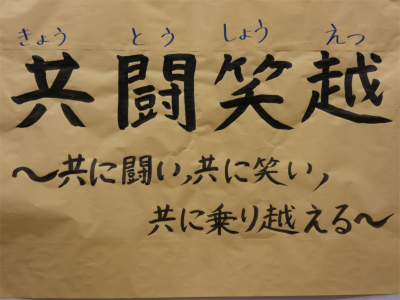 きょう とう しょう えつ
共闘笑越
〜共に闘い,共に笑い,
共に乗り越える〜